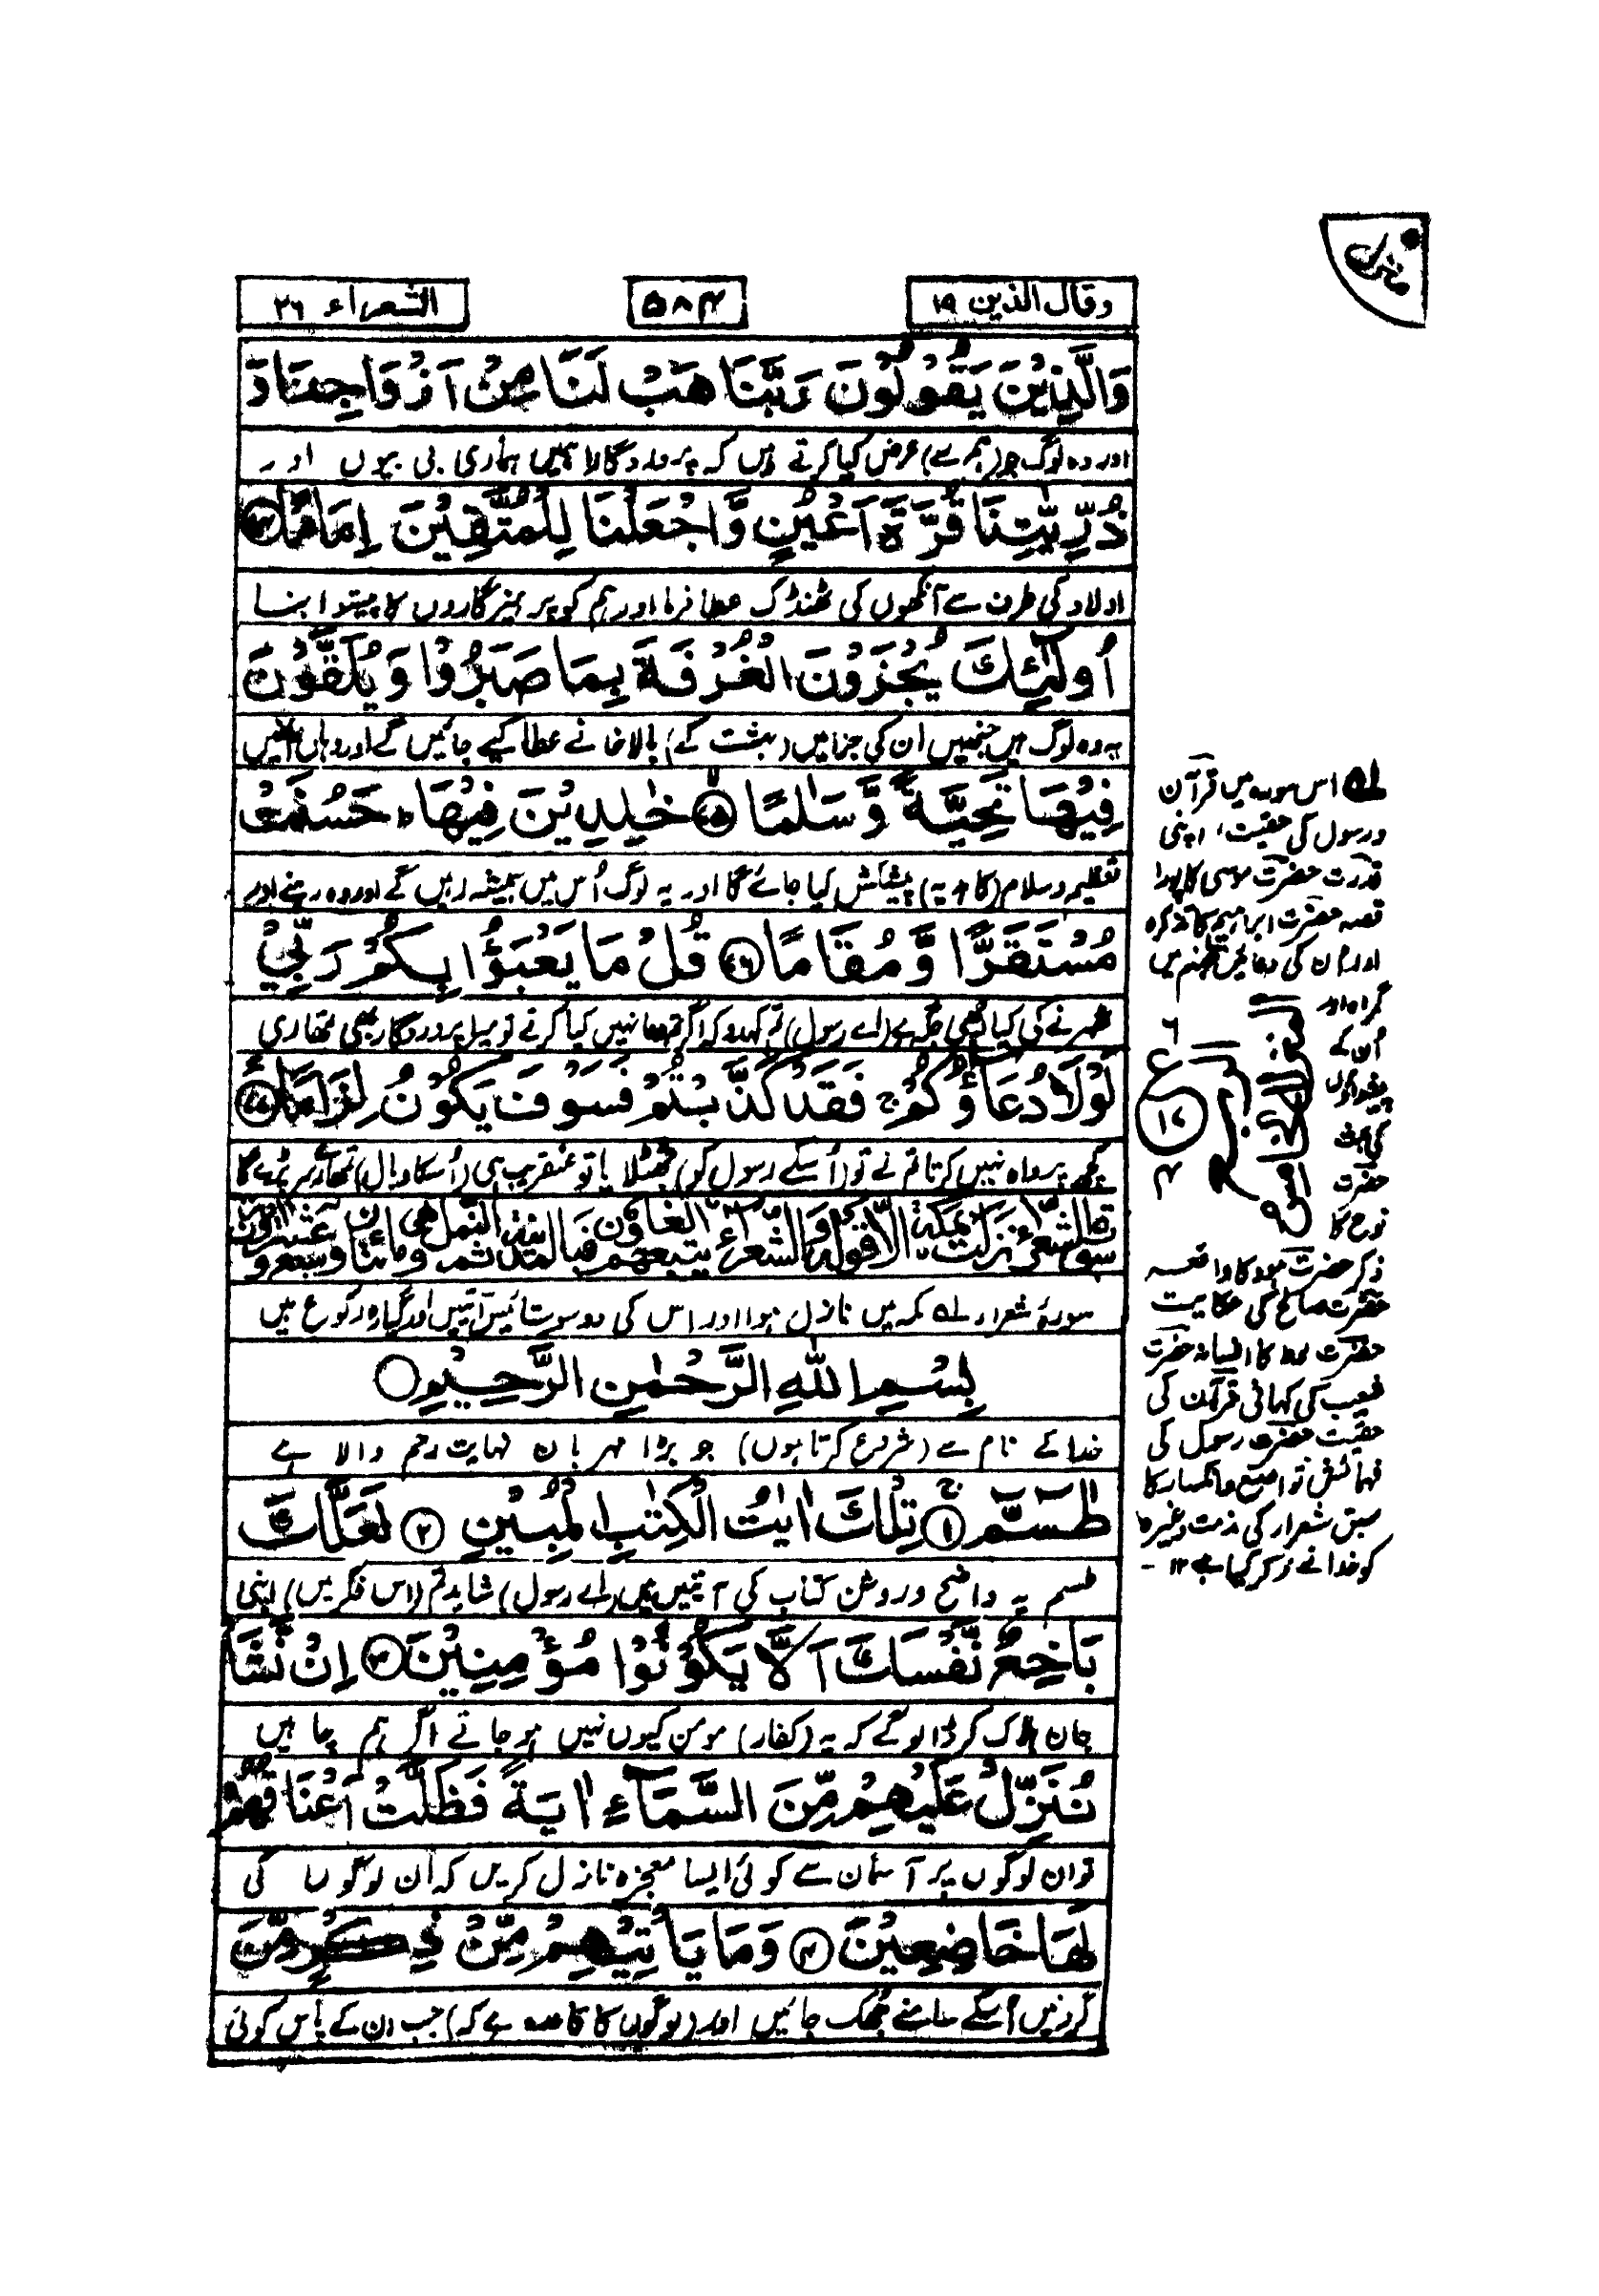 منزل
وقال الذین ۱۹
۵۸۴
الشعراء ۲۶
وَالَّذِيْنَ يَقُوْلُوْنَ رَبَّنَا هَبْ لَنَا مِنْ اَزْوَاجِنَا وَ
اور وہ لوگ جو (ہم سے) عرض کیا کرتے ہیں کہ پروردگارا ہمیں ہماری بی بیوں اور
ذُرِّيّٰتِنَا قُرَّةَ اَعْيُنٍ وَّاجْعَلْنَا لِلْمُتَّقِيْنَ اِمَامًا
اولاد کی طرف سے آنکھوں کی ٹھنڈک عطا فرما اور ہم کو پرہیزگاروں کا پیشوا بنا
اُولٰٓئِكَ يُجْزَوْنَ الْغُرْفَةَ بِمَا صَبَرُوْا وَيُلَقَّوْنَ
یہ وہ لوگ ہیں جنہیں ان کی جزا میں (بہشت کے) بالاخانے عطا کیے جائیں گے اور وہاں انہیں
فِيْهَا تَحِيَّةً وَّسَلٰمًا ﴿۷۵﴾ خٰلِدِيْنَ فِيْهَا ؕ حَسُنَتْ
تعظیم و سلام (کا ہدیہ) پیشکش کیا جائے گا اور یہ لوگ اُس میں ہمیشہ رہیں گے اور وہ رہنے اور
مُسْتَقَرًّا وَّمُقَامًا ﴿۷۶﴾ قُلْ مَا يَعْبَؤُا بِكُمْ رَبِّيْ
ٹھہرنے کی کیا اچھی جگہ ہے (اے رسول) تم کہدو کہ اگر تم دعا نہیں کیا کرتے تو میرا پروردگار بھی تمھاری
لَوْلَا دُعَآؤُكُمْ ۚ فَقَدْ كَذَّبْتُمْ فَسَوْفَ يَكُوْنُ لِزَامًا ﴿۷۷﴾
کچھ پرواہ نہیں کرتا تم نے تو (اُسکے رسول کو) جھٹلایا تو عنقریب ہی (اُسکا وبال) تمھارے سر پڑے گا
سورۂ شعراء لہ مکہ میں نازل ہوا اور اس کی دو سو ستائیس آیتیں اور گیارہ رکوع ہیں
بِسْمِ اللّٰهِ الرَّحْمٰنِ الرَّحِيْمِ
خدا کے نام سے (شروع کرتا ہوں) جو بڑا مہربان نہایت رحم والا ہے
طٰسٓمّٓ ۚ ﴿۱﴾ تِلْكَ اٰيٰتُ الْكِتٰبِ الْمُبِيْنِ ﴿۲﴾ لَعَلَّكَ
طسم یہ واضح و روشن کتاب کی آیتیں ہیں (اے رسول) شاید تم (اس فکر میں) اپنی
بَاخِعٌ نَّفْسَكَ اَلَّا يَكُوْنُوْا مُؤْمِنِيْنَ ﴿۳﴾ اِنْ نَّشَاْ
جان ہلاک کر ڈالو گے کہ یہ (کفار) مومن کیوں نہیں ہو جاتے اگر ہم چاہیں
نُنَزِّلْ عَلَيْهِمْ مِّنَ السَّمَآءِ اٰيَةً فَظَلَّتْ اَعْنَاقُهُمْ
تو ان لوگوں پر آسمان سے کوئی ایسا معجزہ نازل کریں کہ اُن لوگوں کی
لَهَا خَاضِعِيْنَ ﴿۴﴾ وَمَا يَاْتِيْهِمْ مِّنْ ذِكْرٍ مِّنَ
گردنیں اُسکے سامنے جھک جائیں اور (لوگوں کا قاعدہ ہے کہ) جب ان کے پاس کوئی
لہ اس سورہ میں قرآن
و رسول کی حقیت، اپنی
قدرت حضرت موسی کا پورا
قصہ حضرت ابراہیم کا تذکرہ
اور ان کی دعائیں جہنم میں
گمراہ اور
اُن کے
پیشواؤں
کی بحث
حضرت
نوح کا
ذکر حضرت ہود کا واقعہ
حضرت صالح کی حکایت
حضرت لوط کا افسانہ حضرت
شعیب کی کہانی قرآن کی
حقیت حضرت رسول کی
فہمائش تواضع و انکسار کا
سبق شعراء کی مذمت وغیرہ
کو خدا نے ذکر کیا ہے ۱۲ -
۶
ع
۱۷
۴